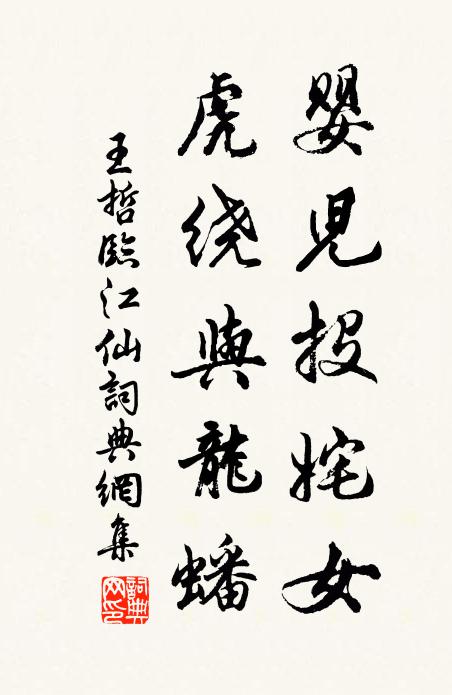 嬰児投姹女
虎绕與龍蟠
王哲臨江仙詞典網集
詞典网印